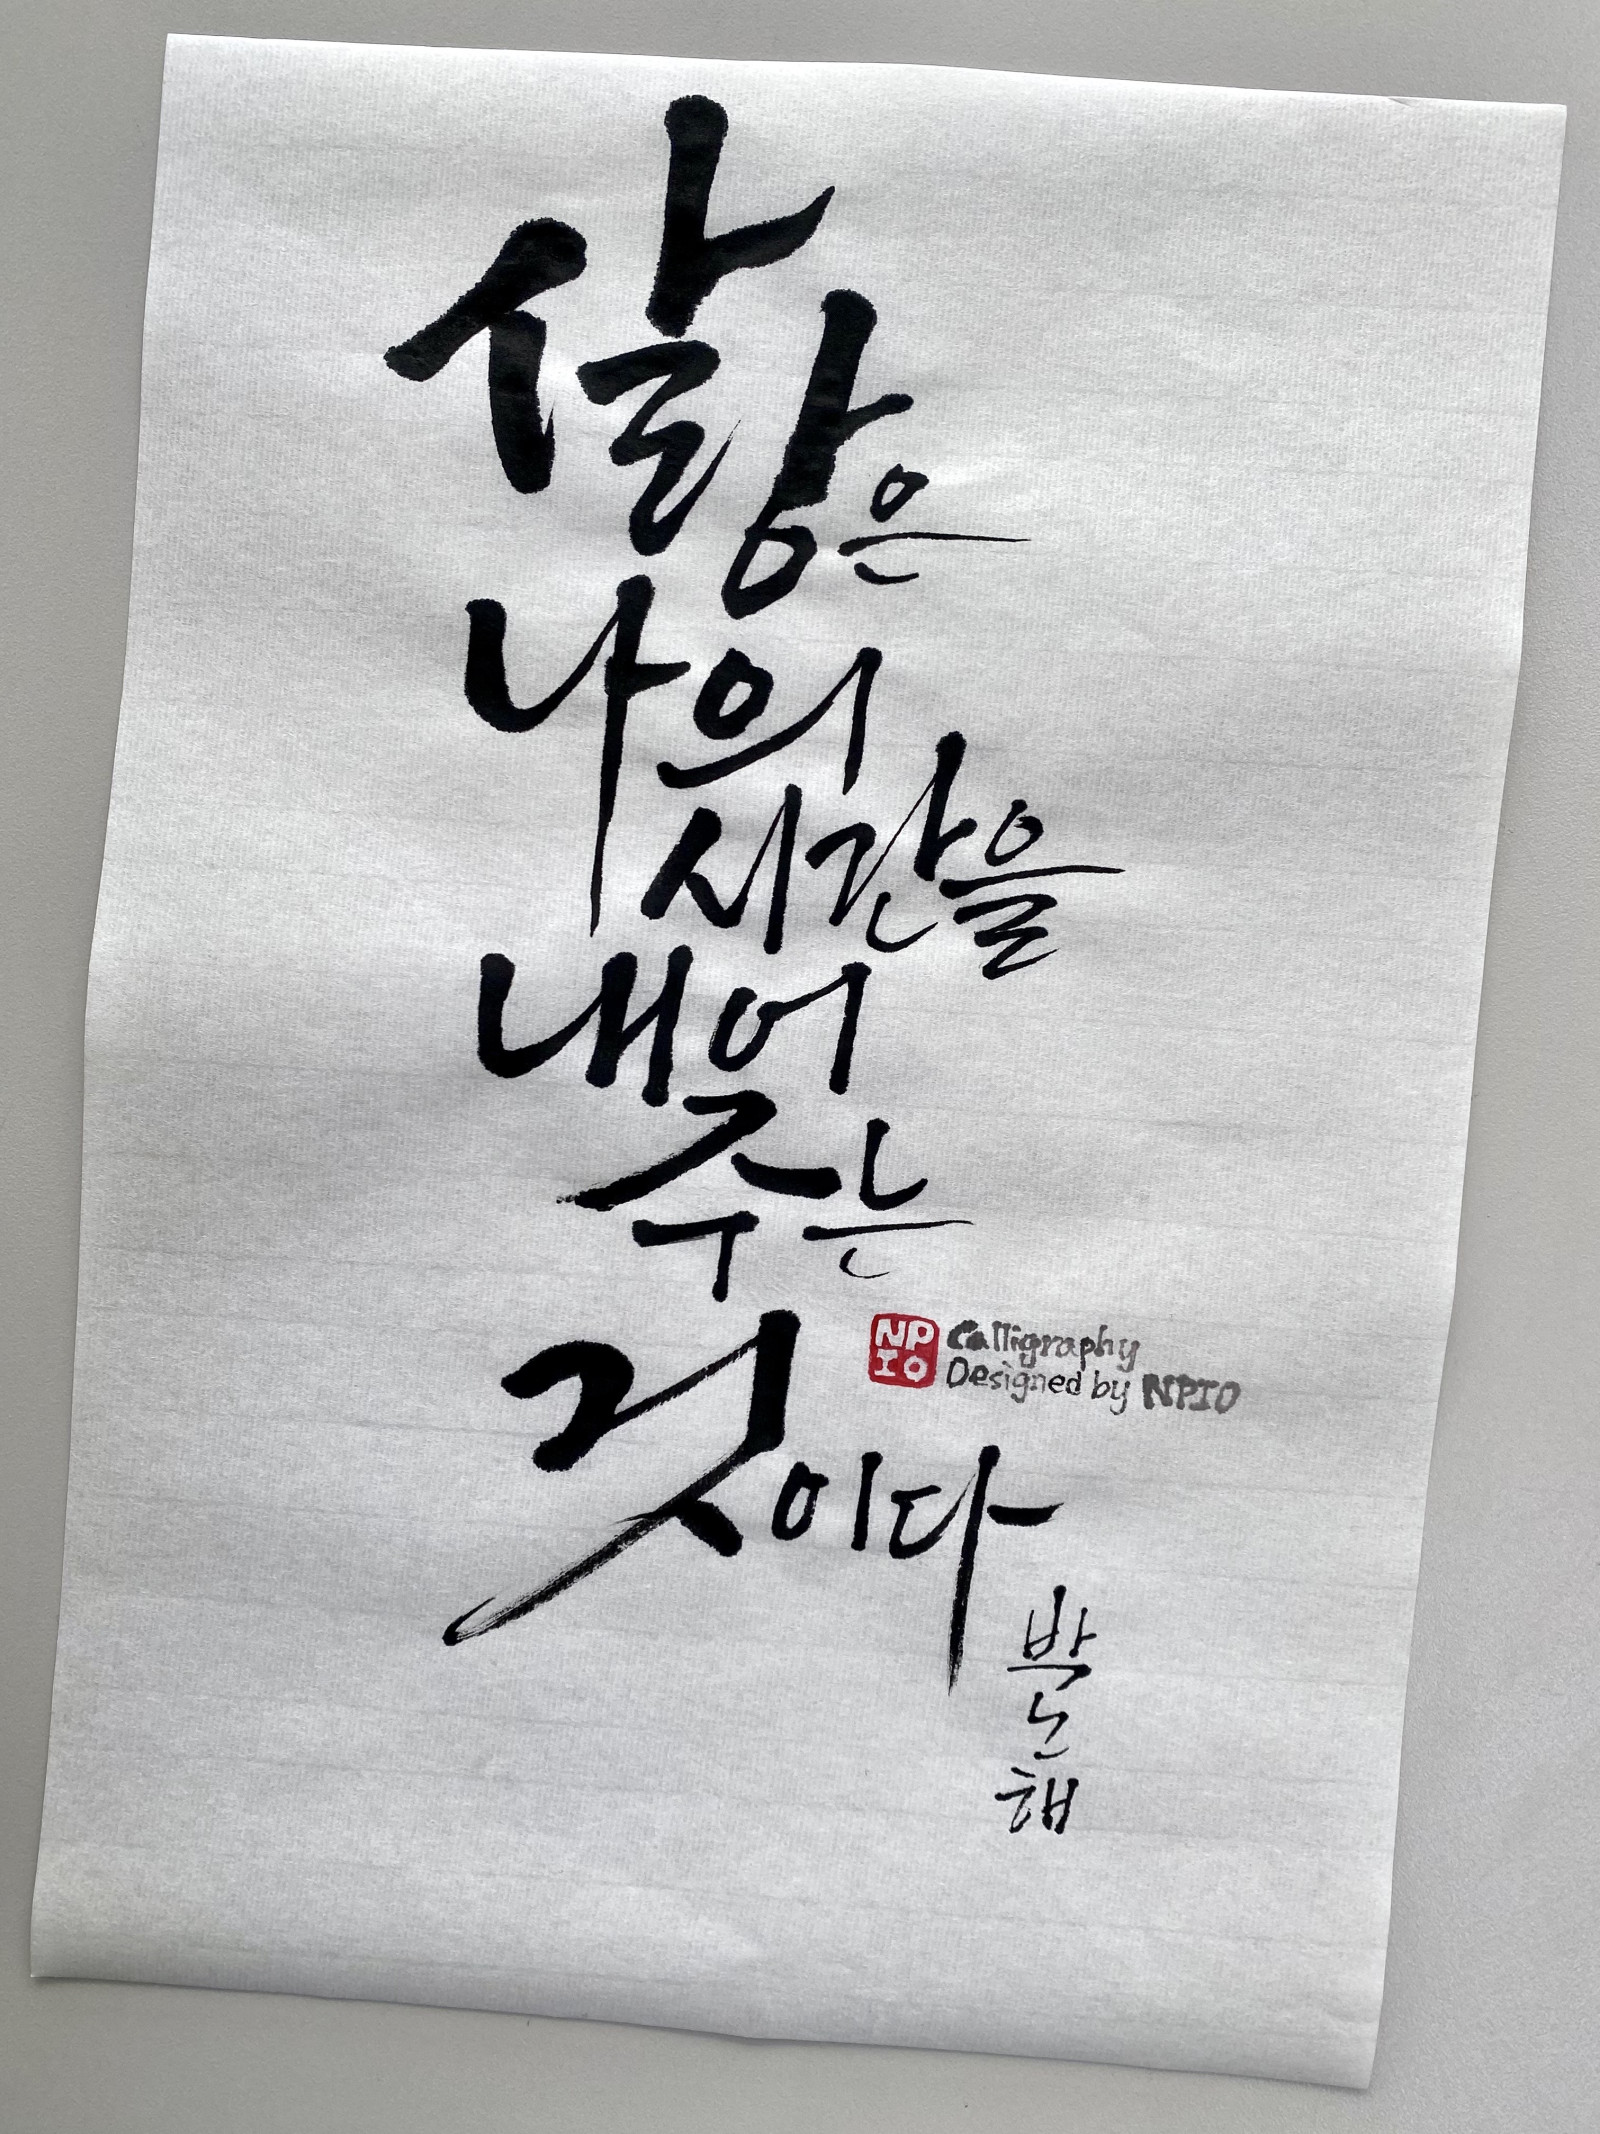 사랑은
나의
시간을
내어
주는
NP
IO
Calligraphy
Designed by NPIO
것이다
박노해